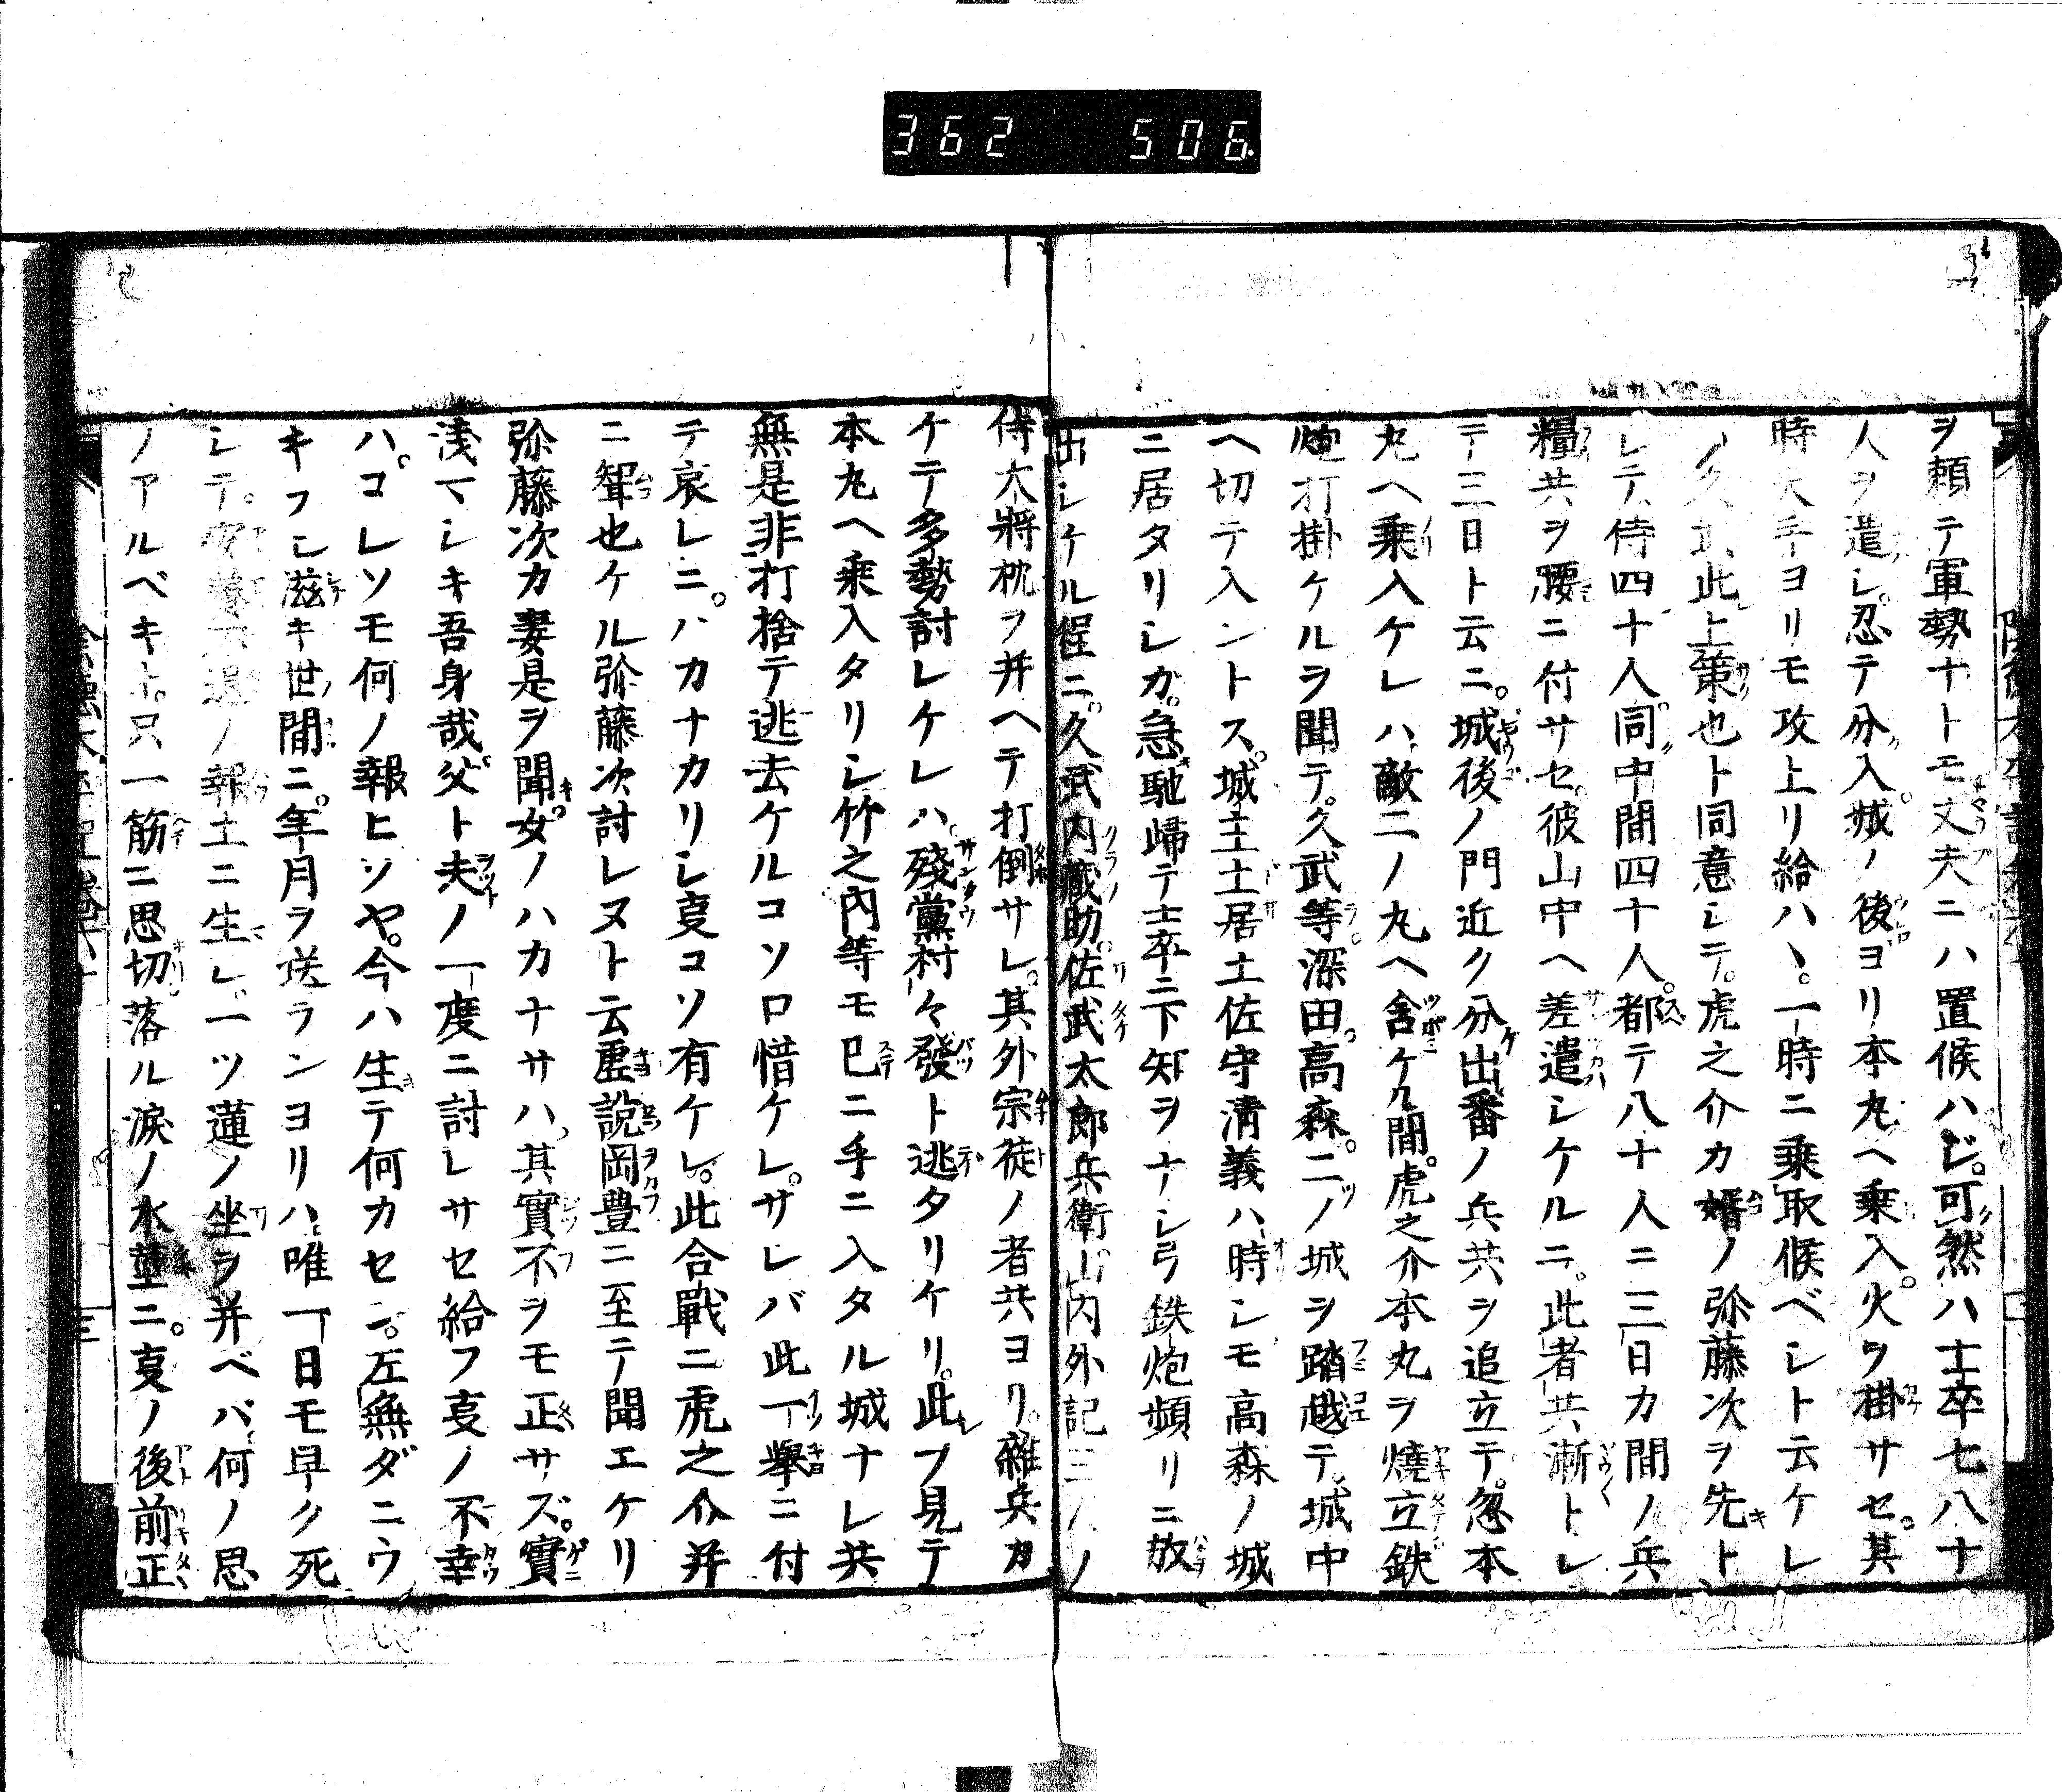 362 506
ヲ頼テ軍勢ナトモ丈夫ニハ置候ハジ。可然ハ士卒七八十
人ヲ遣シ。忍テ分入。城ノ後ヨリ本丸ヘ乗入。火ヲ掛サセ。其
時大手ヨリモ攻上リ給ハヽ。一時ニ乗取候ベシト云ケレ
ハ久武此上策也ト同意シテ。虎之介カ婿ノ弥藤次ヲ先ト
シテ。侍四十人。同中間四十人。都テ八十人ニ三日カ間ノ兵
糧共ヲ腰ニ付サセ。彼山中ヘ差遣シケルニ。此者共漸トシ
テ三日ト云ニ。城後ノ門近ク分出番ノ兵共ヲ追立テ。忽本
丸ヘ乗入ケレハ。敵二ノ丸ヘ含ケル間。虎之介本丸ヲ燒立鉄
炮打掛ケルヲ聞テ。久武等深田。高森。二ノ城ヲ踏越テ。城中
ヘ切テ入ントス。城主土居土佐守清義ハ。時シモ高森ノ城
ニ居タリシカ。急馳歸テ士卒ニ下知ヲナシ弓鉄炮頻リニ放
出シケル程ニ。久武内蔵助。佐武太郎兵衛山内外記三人ノ
侍大將枕ヲ并ヘテ打倒サレ。其外宗徒ノ者共ヨリ。雜兵カ
ケテ多勢討レケレハ。殘黨村々發ト逃タリケリ。此フ見テ
本丸ヘ乗入タリシ竹之内等モ已ニ手ニ入タル城ナレ共
無是非打捨テ逃去ケルコソロ惜ケレ。サレバ此一擧ニ付
テ哀レニ。ハカナカリシ㕝コソ有ケレ。此合戰ニ虎之介并
ニ聟也ケル弥藤次討レヌト云虚說岡豊ニ至テ聞エケリ
弥藤次カ妻是ヲ聞。女ノハカナサハ。其實不ヲモ正サズ。實
浅マシキ吾身哉。父ト夫ノ一度ニ討レサセ給フ㕝ノ不幸
ハ。コレソモ何ノ報ヒソヤ。今ハ生テ何カセン。左無ダニウ
キフシ滋キ世間ニ。年月ヲ送ランヨリハ。唯一日モ早ク死
シテ。安養ノ報土ニ生レ。一ツ蓮ノ坐ヲ并ベバ。何ノ思
ノアルベキト。只一筋ニ思切落ル涙ノ水莖ニ。㕝ノ後前正